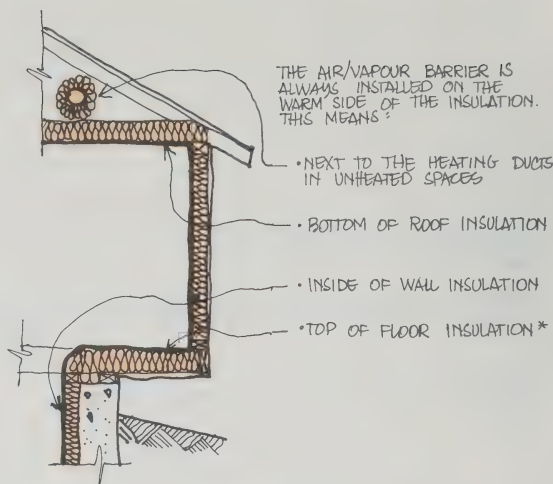 THE AIR/VAPOUR BARRIER IS
ALWAYS INSTALLED ON THE
WARM SIDE OF THE INSULATION.
THIS MEANS:
• NEXT TO THE HEATING DUCTS
IN UNHEATED SPACES
• BOTTOM OF ROOF INSULATION
• INSIDE OF WALL INSULATION
• TOP OF FLOOR INSULATION*